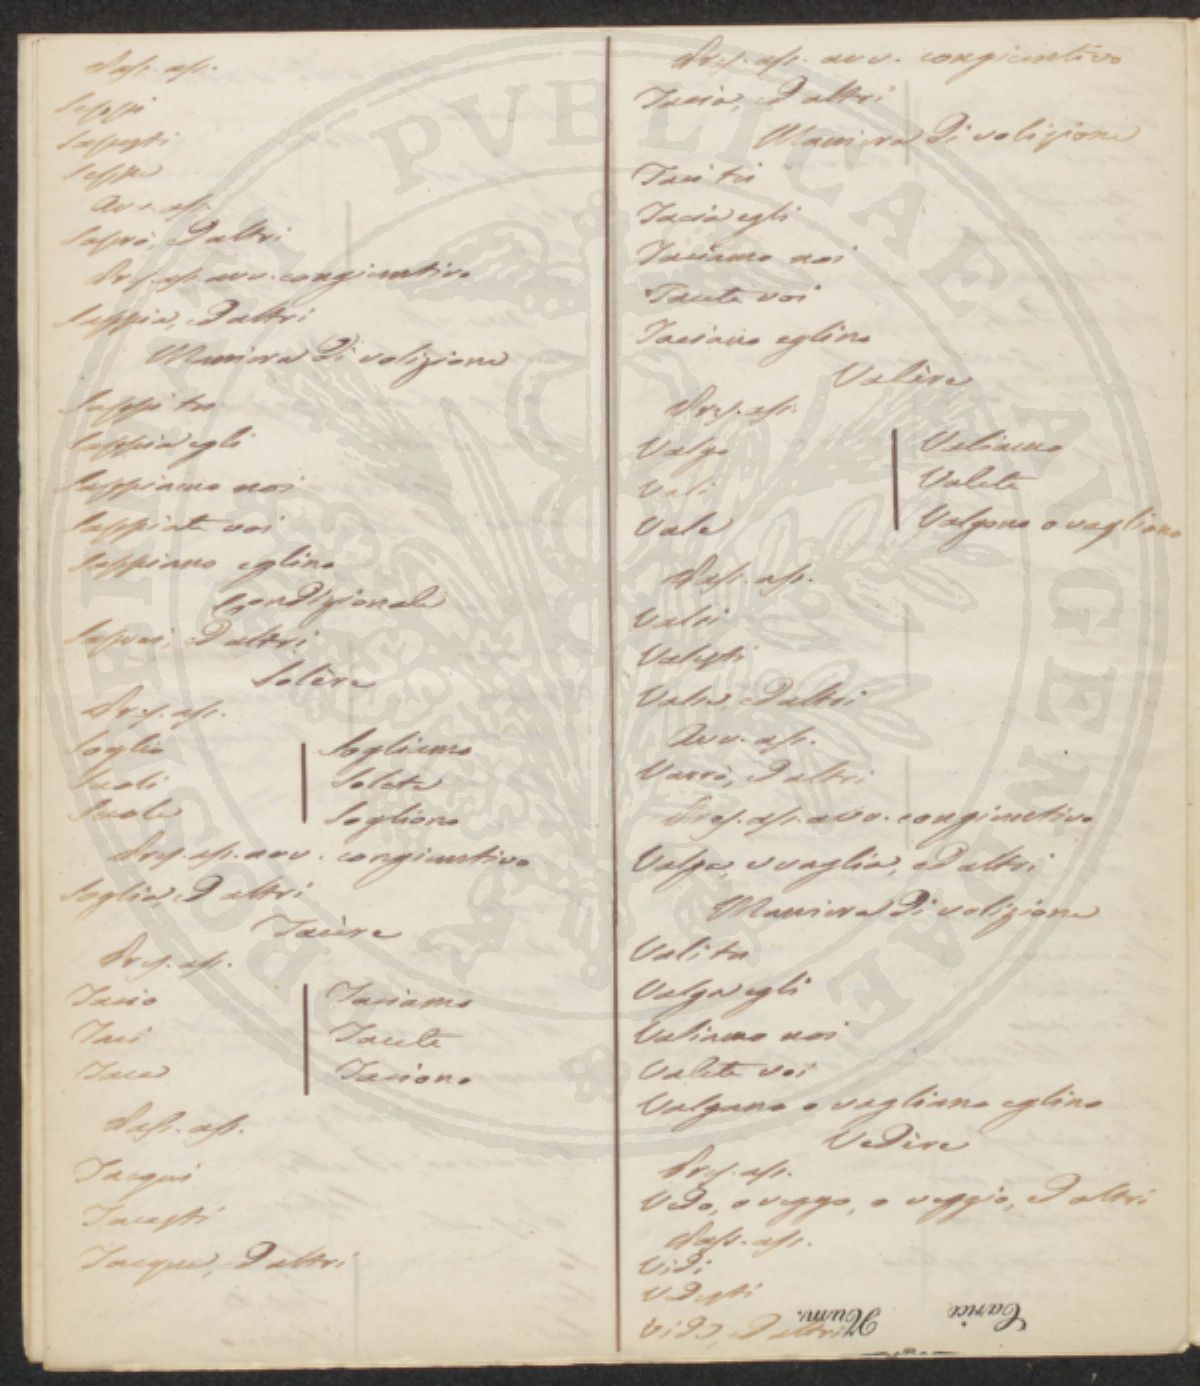 Pass. ass.
Seppi
Sapesti
Seppe
Avv. ass.
Saprò, ed altri
Pres. ass. avv. congiuntivo
Sappia, ed altri
Maniera di volizione
Sappi tu
Sappia egli
Sappiamo noi
Sappiate voi
Sappiano eglino
Condizionale
Saprei, ed altri
Solère
Pres. ass.
Soglio | Sogliamo
Suoli | Solete
Suole | Sogliono
Pres. ass. avv. congiuntivo
Soglia, ed altri
Tacère
Pres. ass.
Tacio | Taciamo
Taci | Tacete
Tace | Taciono
Pass. ass.
Tacqui
Tacesti
Tacque, ed altri
Pres. ass. avv. congiuntivo
Tacia, ed altri
Maniera di volizione
Taci tu
Tacia egli
Taciamo noi
Tacete voi
Taciano eglino
Valère
Pres. ass.
Valgo | Valiamo
Vali | Valete
Vale | Valgono o vagliono
Pass. ass.
Valsi
Valesti
Valse, ed altri
Avv. ass.
Varrò, ed altri
Pres. ass. avv. congiuntivo
Valga, o vaglia, ed altri
Maniera di volizione
Vali tu
Valga egli
Valiamo noi
Valete voi
Valgano o vagliano eglino
Vedère
Pres. ass.
Vedo, o veggo, o veggio, ed altri
Pass. ass.
Vidi
Vedesti
Vide, ed altri
Carice Num.
PUBLICAE